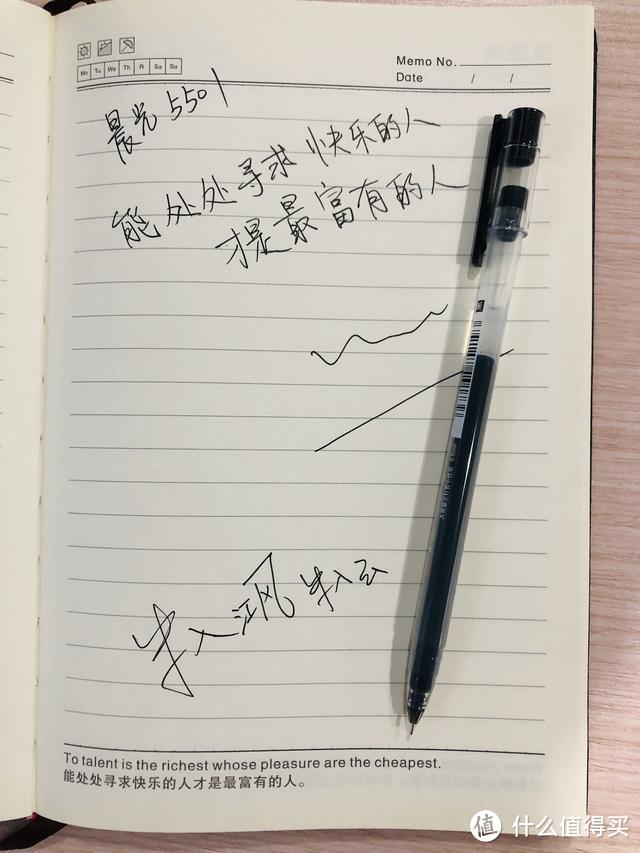 Memo No.
Mo Tu We Th Fr Sa Su
Date / /
晨光 5501
能处处寻求快乐的人
才是最富有的人
半入江风半入云
To talent is the richest whose pleasure are the cheapest.
能处处寻求快乐的人才是最富有的人。
值 什么值得买